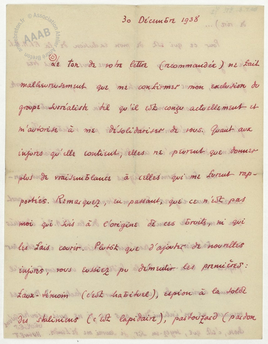 30 Décembre 1938
Le ton de votre lettre (recommandée) ne fait
malheureusement que me confirmer mon exclusion du
groupe surréaliste tel qu'il est conçu actuellement et
m'autorise à me désolidariser de vous. Quant aux
injures qu'elle contient, elles ne peuvent que donner
plus de vraisemblance à celles qui me furent rap-
portées. Remarquez, en passant, que ce n'est pas
moi qui suis à l'origine de ces bruits, ni qui
les fais courir. Plutôt que d'ajouter de nouvelles
injures, vous eussiez pu démentir les premières :
faux-témoin (c'est                ), espion à la solde
du stalinien (c'est lapidaire),                (pardon
AAAB